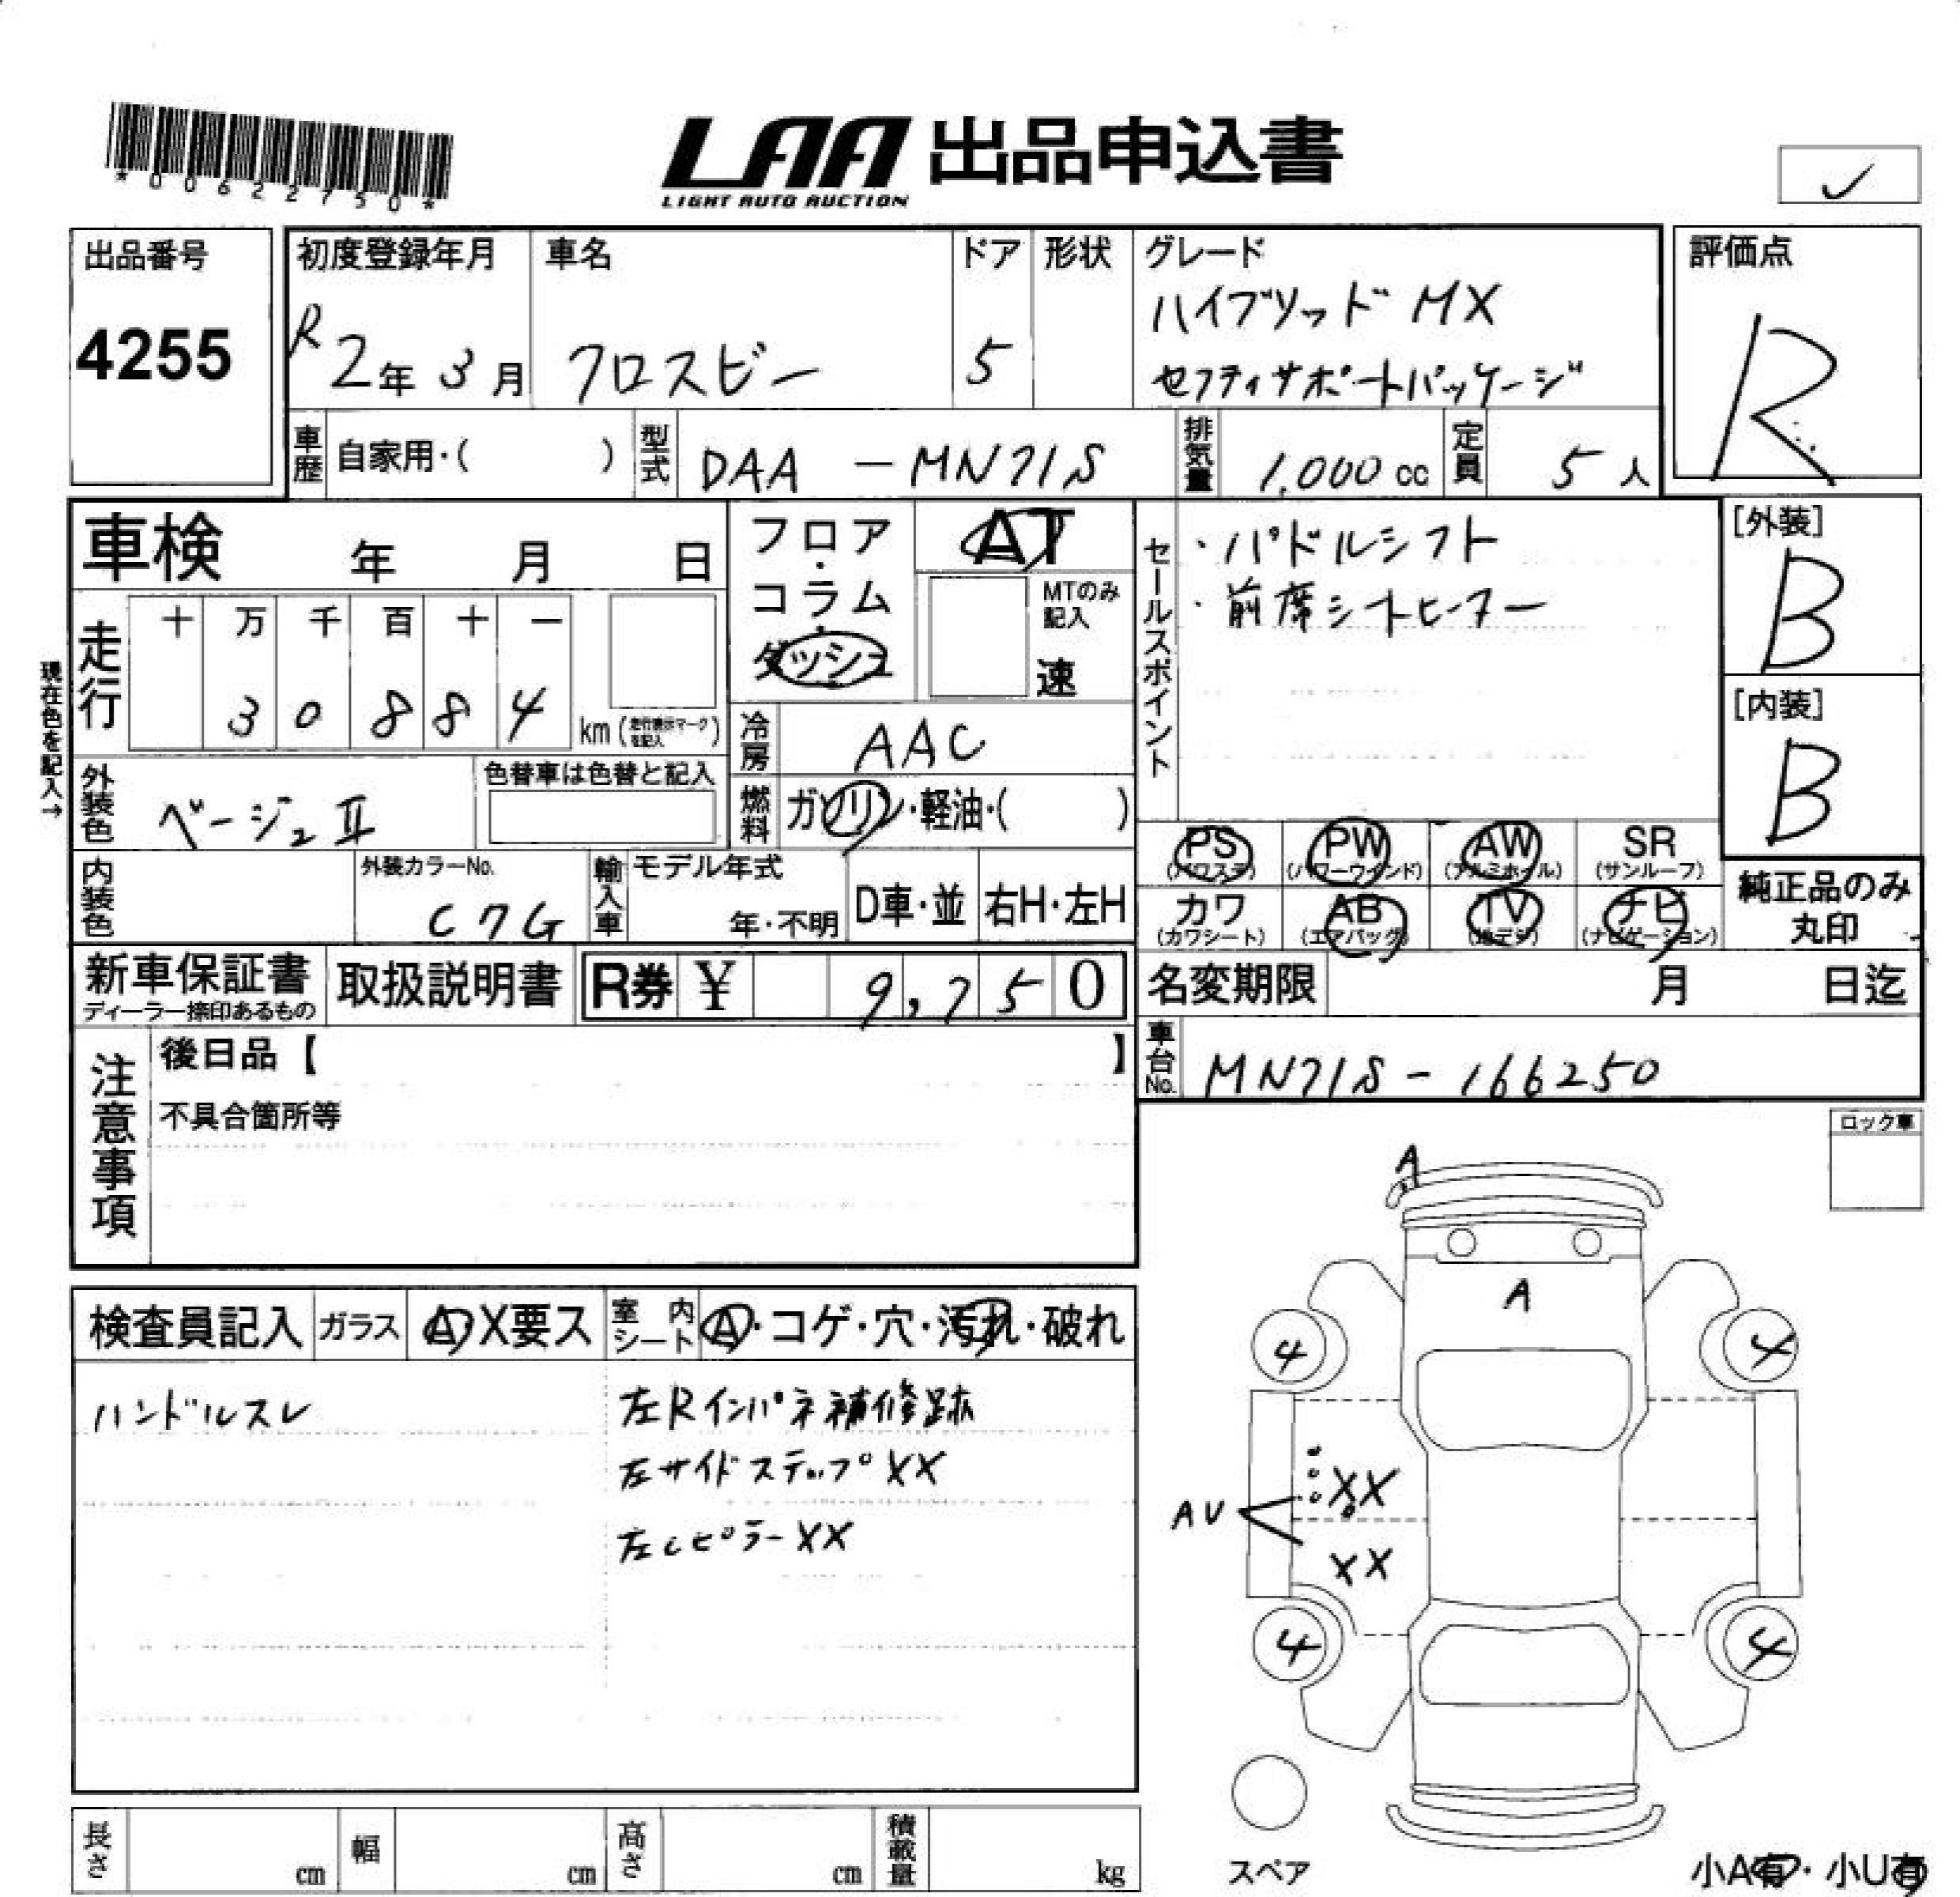 *00622750*
LAA 出品申込書
LIGHT AUTO AUCTION
✓
出品番号
4255
初度登録年月
R2年3月
車名
クロスビー
ドア
5
形状
グレード
ハイブリッド MX
セフティサポートパッケージ
評価点
R
車歴 自家用・( )
型式 DAA - MN71S
排気量 1,000 cc
定員 5人
車検 年 月 日
フロア・コラム・ダッシュ
AT
MTのみ記入
速
セールスポイント
・パドルシフト
・前席シートヒーター
[外装]
B
[内装]
B
現在色を記入→
走行
十 万 千 百 十 一
3 0 8 8 4
km (走行表示マークを記入)
冷房 AAC
外装色 ベージュⅡ
色替車は色替と記入
燃料 ガソリン・軽油・( )
PS (パワステ)
PW (パワーウインド)
AW (アルミホイル)
SR (サンルーフ)
カワ (カワシート)
AB (エアバッグ)
TV (地デジ)
ナビ (ナビゲーション)
純正品のみ
丸印
内装色
外装カラーNo.
C7G
輸入車
モデル年式
年・不明
D車・並
右H・左H
新車保証書
ディーラー捺印あるもの
取扱説明書
R券 ¥ 9,750
名変期限 月 日迄
車台No. MN71S - 166250
注意事項
後日品【 】
不具合箇所等
ロック車
検査員記入
ガラス A・X要ス
室内シート A・コゲ・穴・汚れ・破れ
ハンドルスレ
左Rインパネ補修跡
左サイドステップXX
左CピラーXX
A
A
4 4
XX
AU
XX
4 4
スペア
長さ cm
幅 cm
高さ cm
積載量 kg
小A有・小U有